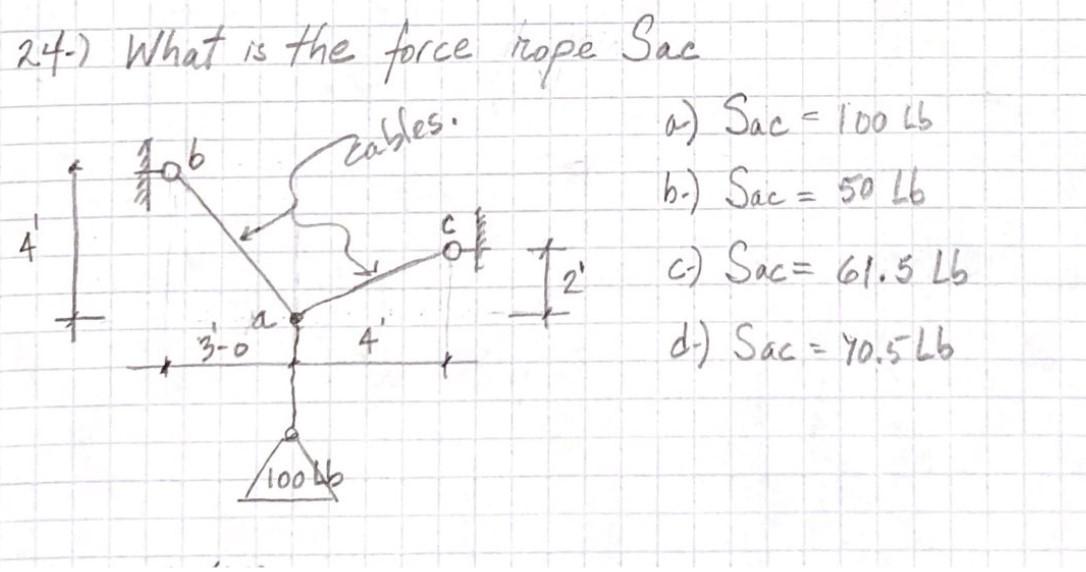 24-) What is the force rope Sac
cables.
a-) Sac = 100 Lb
b
b-) Sac = 50 Lb
4'
c
2'
c-) Sac = 61.5 Lb
a
3'-0
4'
d-) Sac = 70.5 Lb
100 Lb